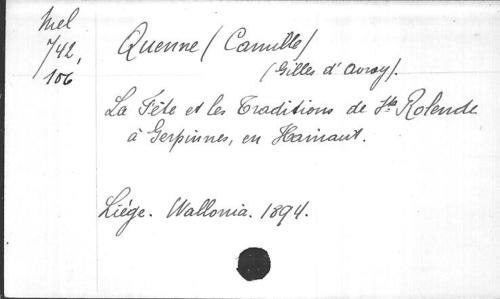 Mel
742,
106
Quenne (Camille)
(Gilles d'Avray).
La Fête et les Traditions de Ste Rolende
à Gerpinnes, en Hainaut.
Liége. Wallonia. 1894.